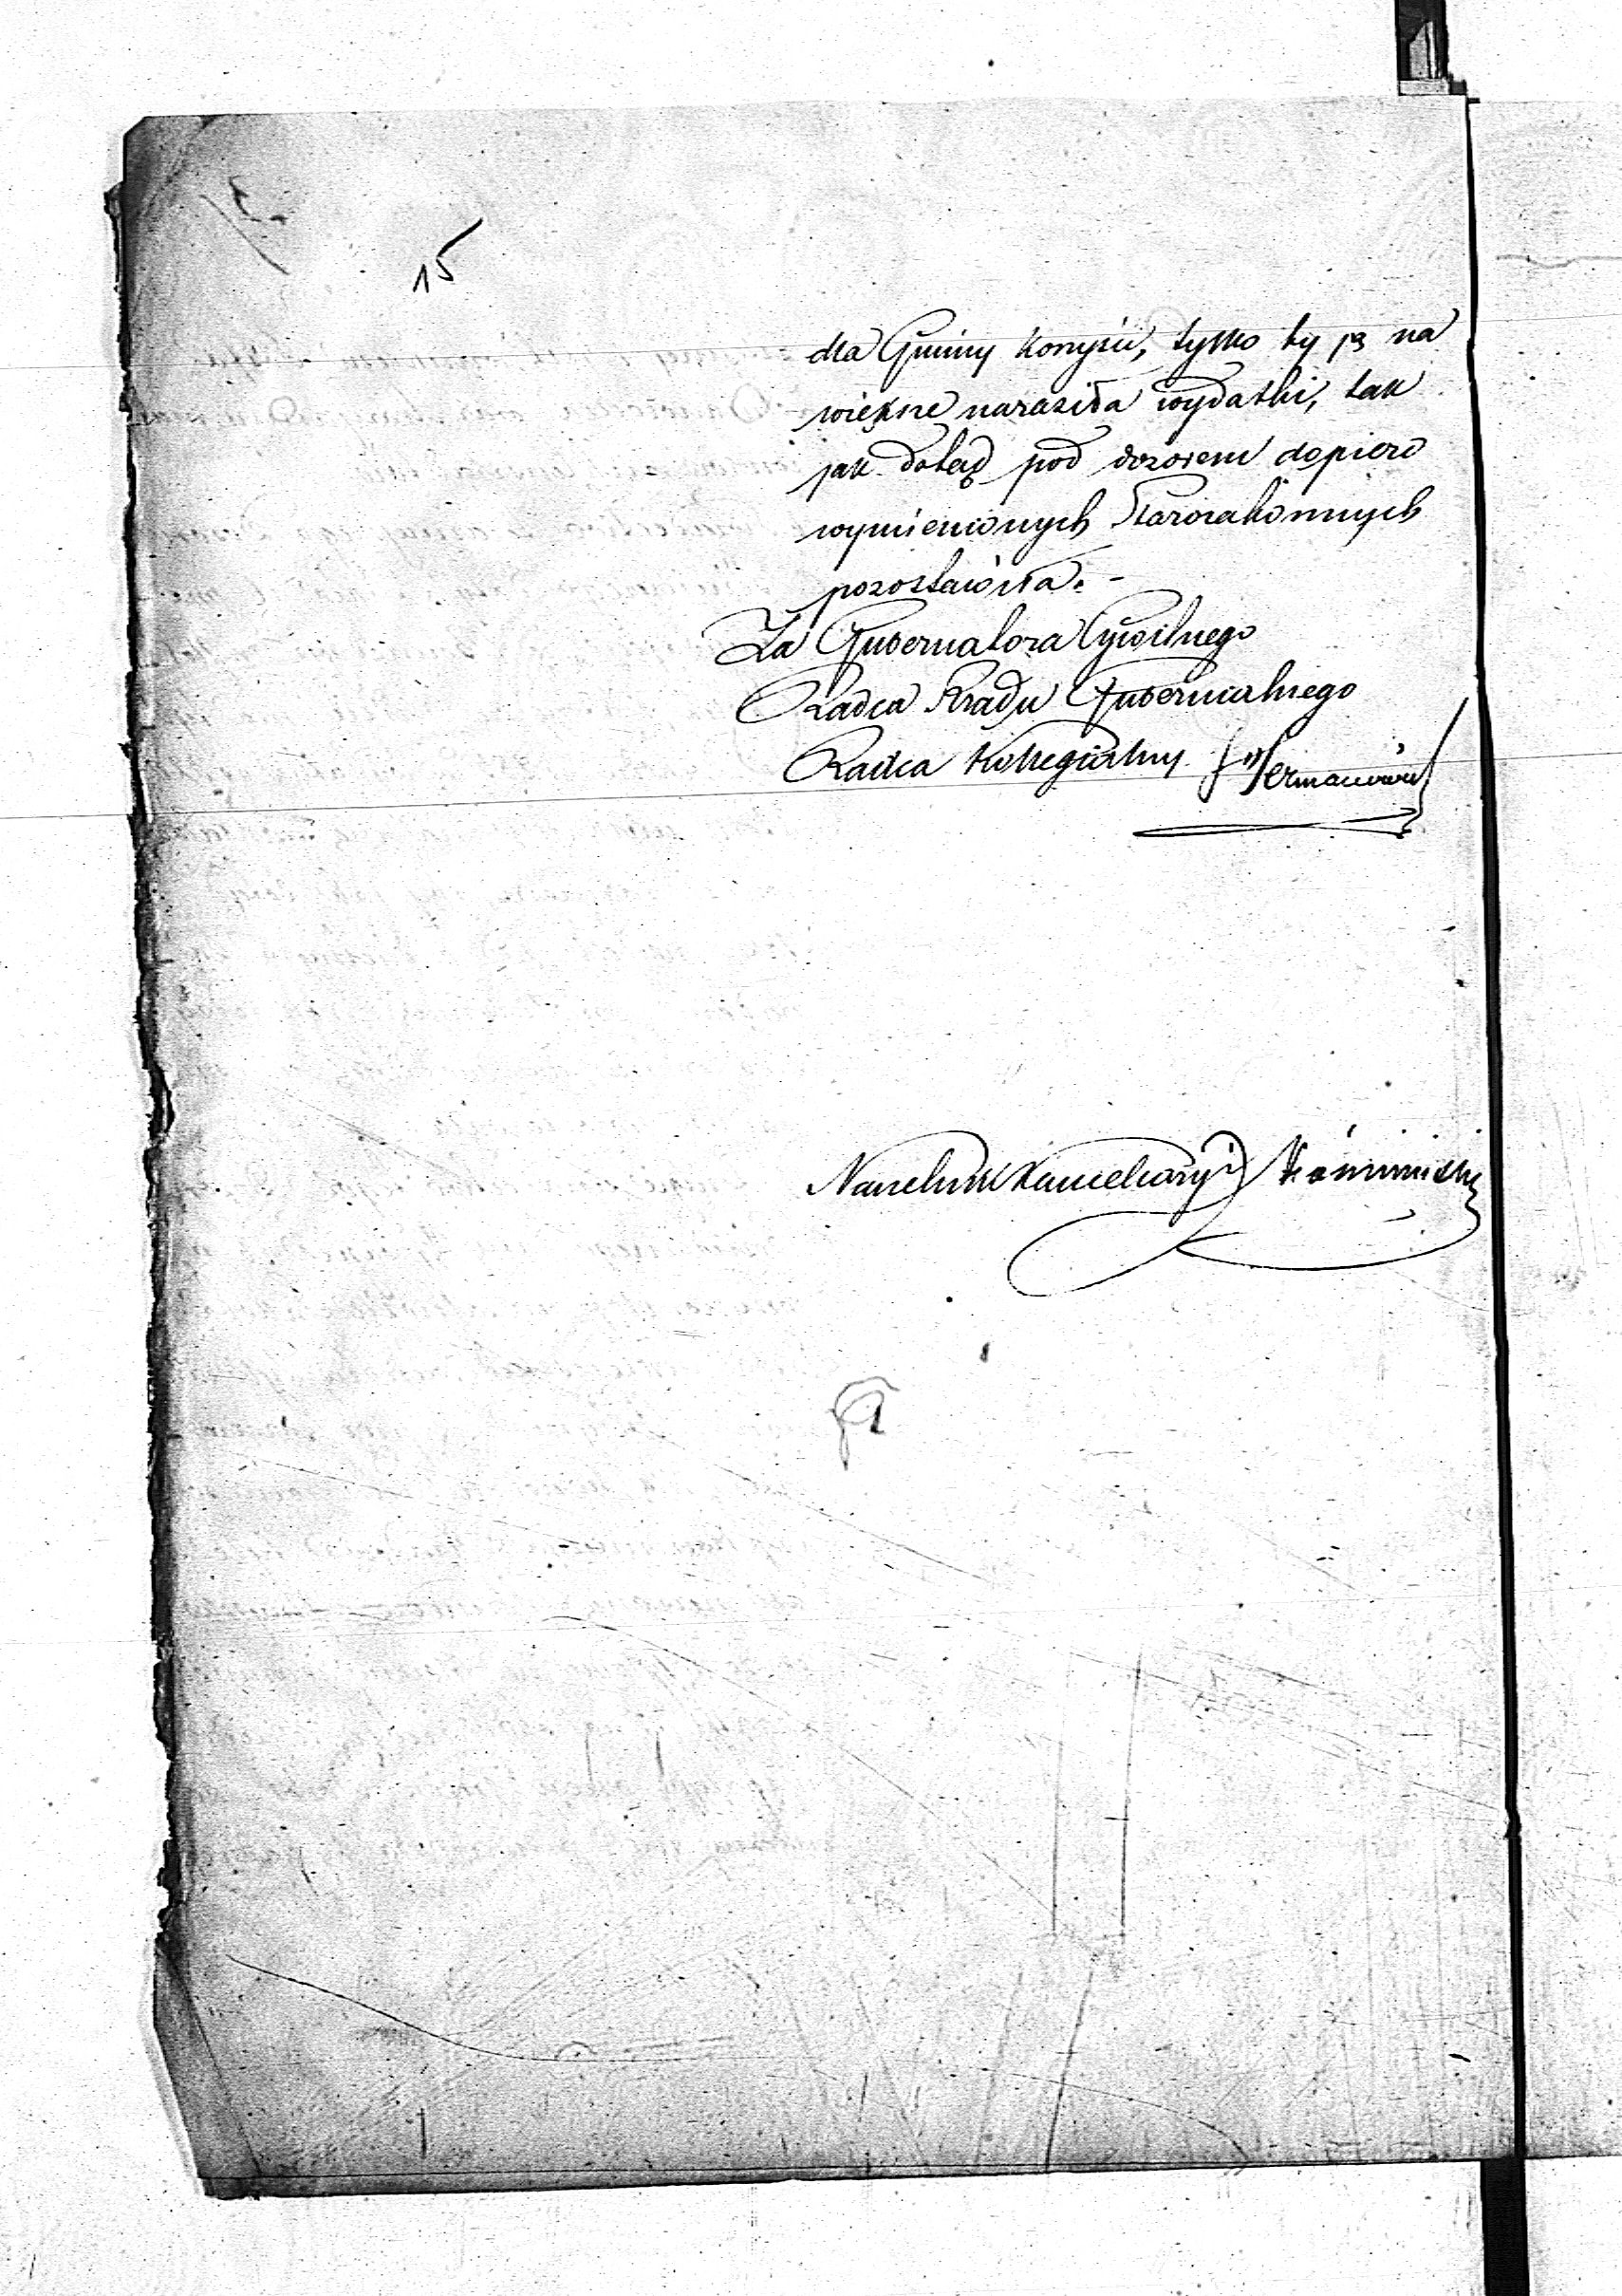 15
dla Gminy korzyści, tylko by ją na
większe naraziła wydatki, tak
jak dotąd pod dozorem dopiero
wymienionych Starozakonnych
pozostawiła. -
Za Gubernatora Cywilnego
Radca Rządu Gubernialnego
Radca Kollegialny Hermanowicz
Naczelnik Kancelaryi